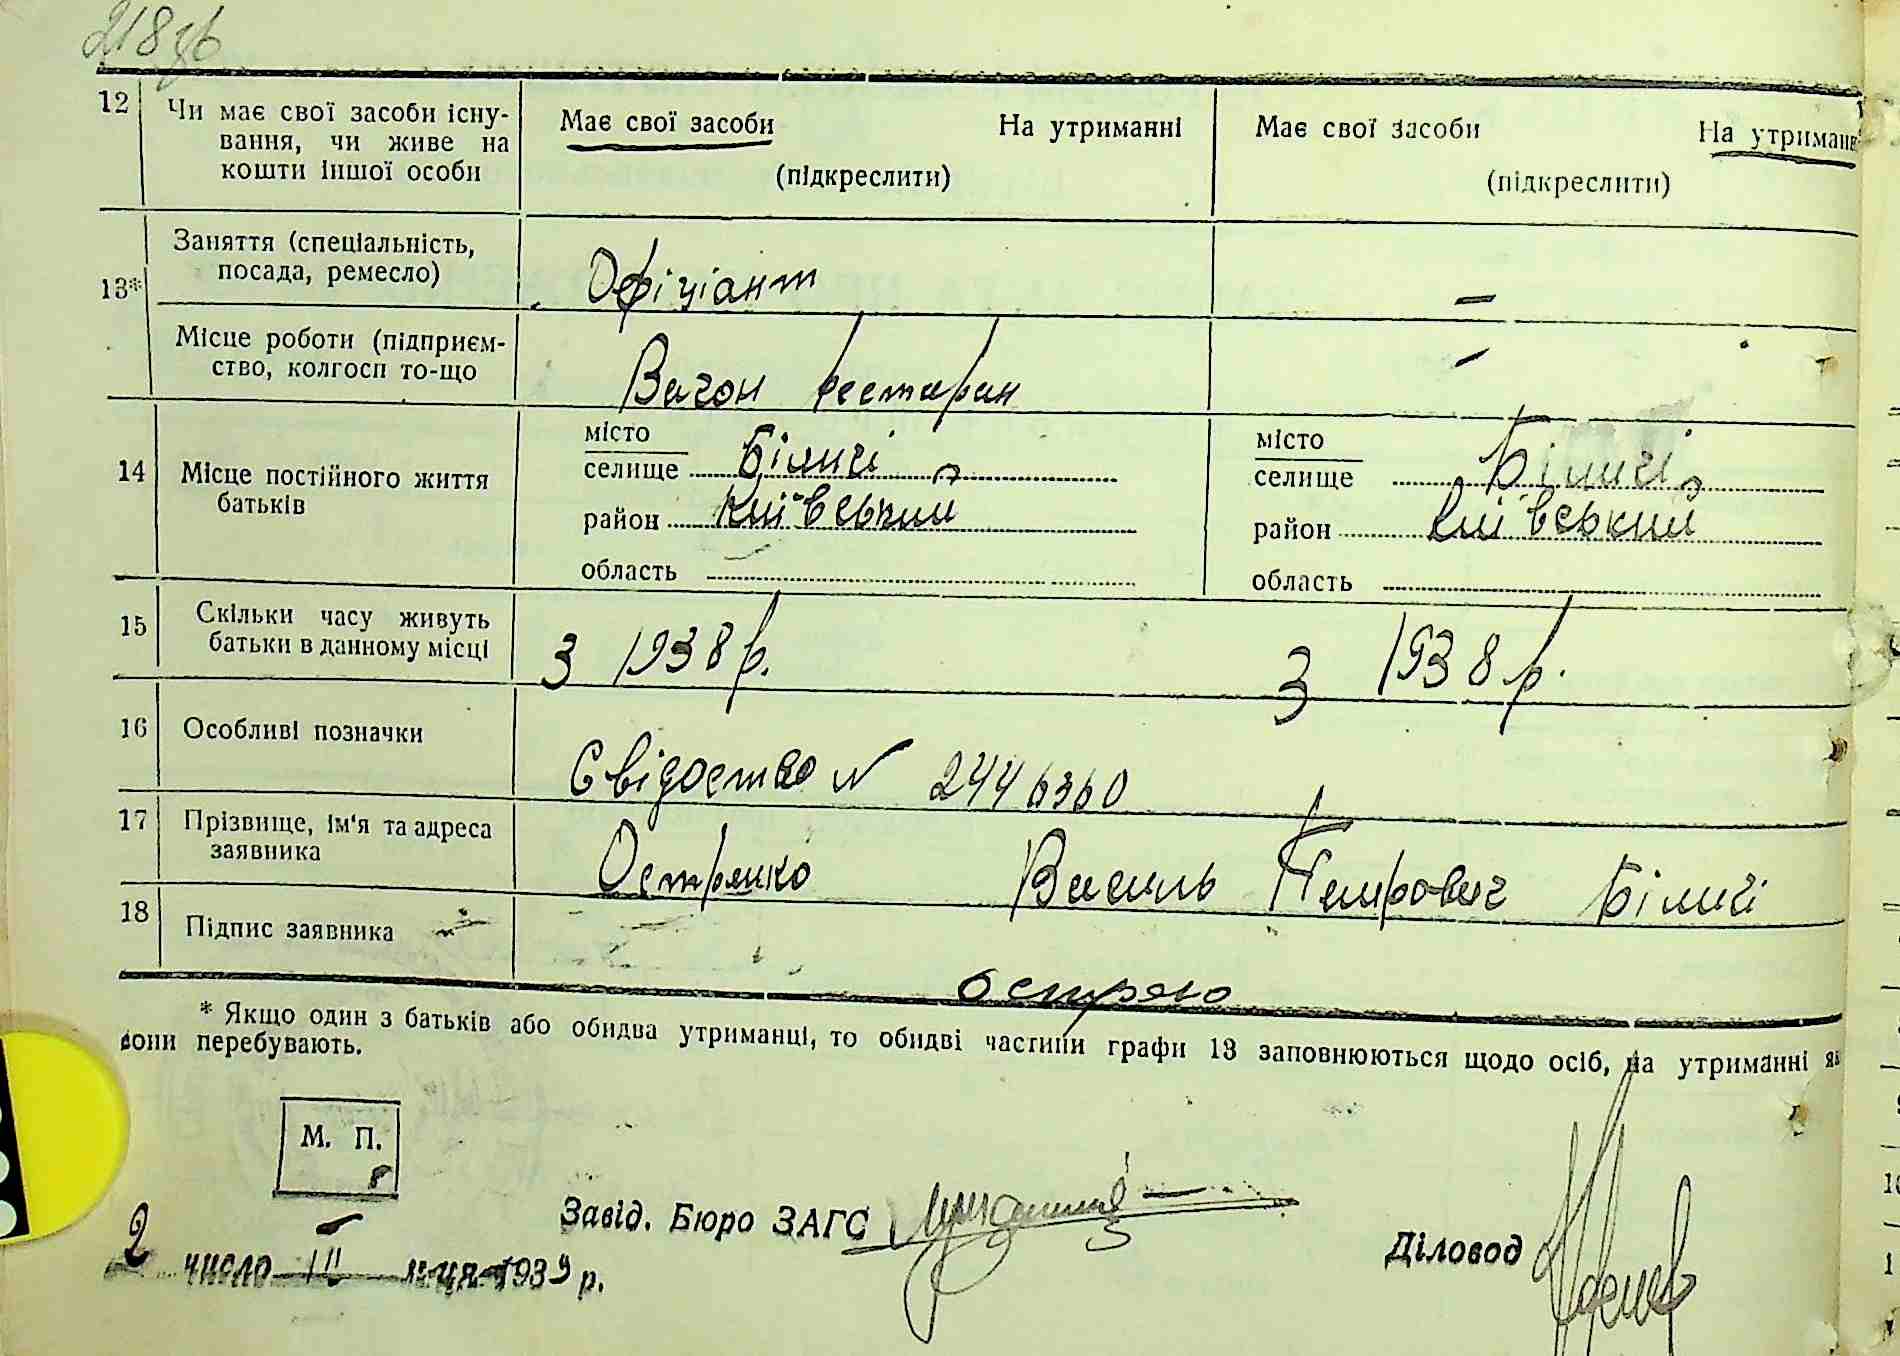 218зв
12 Чи має свої засоби існу-
вання, чи живе на
кошти іншої особи
Має свої засоби На утриманні
(підкреслити)
Має свої засоби На утриманн
(підкреслити)
13*
Заняття (спеціальність,
посада, ремесло)
Офіціант
–
Місце роботи (підприєм-
ство, колгосп то-що
Вагон ресторан
–
14 Місце постійного життя
батьків
місто
селище Біличі
район Київський
область
місто
селище Біличі
район Київський
область
15 Скільки часу живуть
батьки в данному місці
З 1938 р.
З 1938 р.
16 Особливі позначки
Свідоство N 2446360
17 Прізвище, ім'я та адреса
заявника
Острянко Василь Петрович Біличі
18 Підпис заявника
* Якщо один з батьків або обидва утриманці, то обидві частини графи 13 заповнюються щодо осіб, на утриманні як
вони перебувають.
М. П.
Завід. Бюро ЗАГС
Діловод
2 число III м-ця 1939 р.